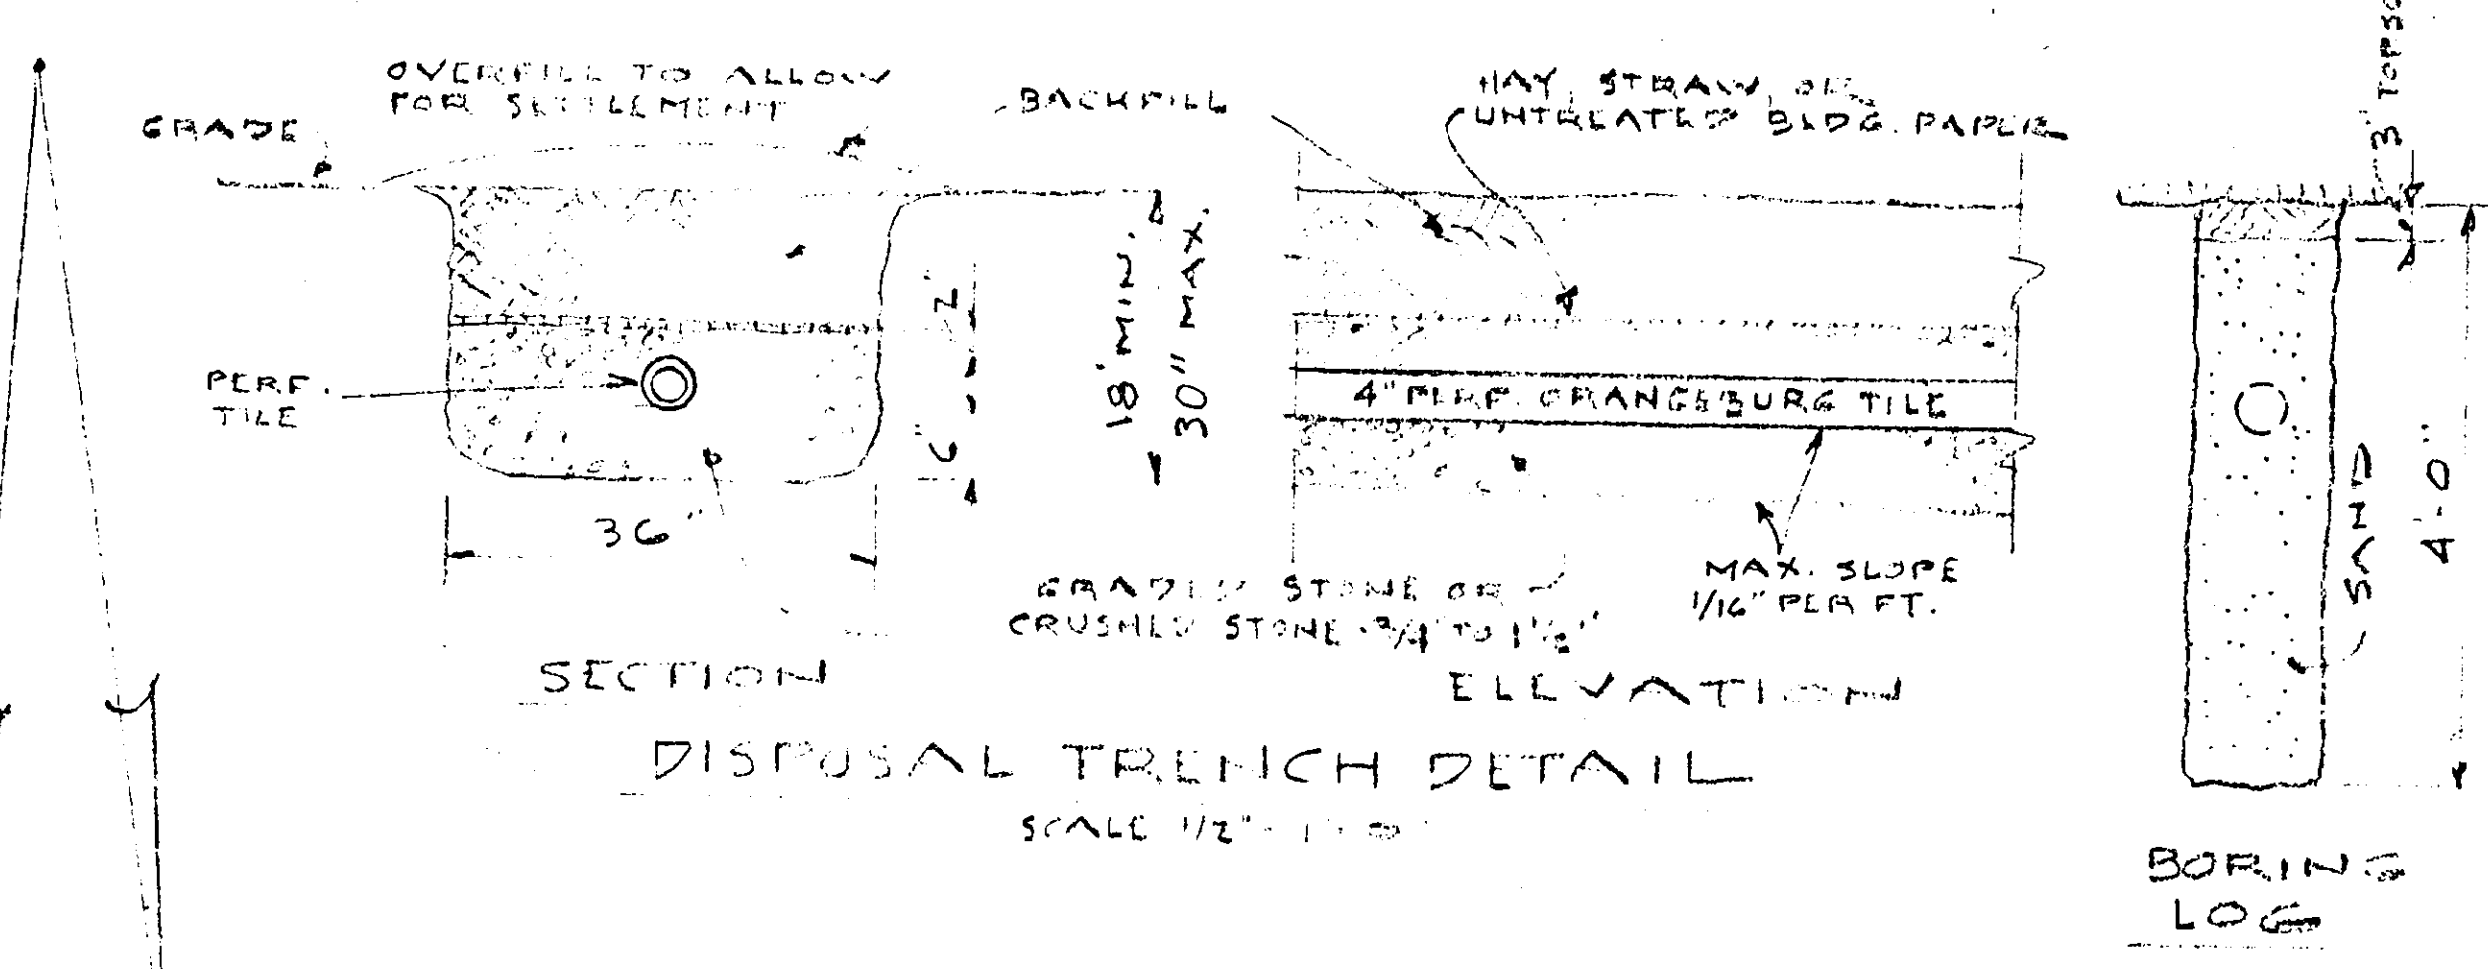 OVERFILL TO ALLOW
FOR SETTLEMENT
GRADE
BACKFILL
HAY, STRAW, OR
UNTREATED BLDG. PAPER
3" TOPSO
2"
6"
18" MIN.
30" MAX.
PERF.
TILE
4" PERF. ORANGEBURG TILE
36"
SAND
4'-0"
GRADED STONE OR
CRUSHED STONE 3/4" TO 1 1/2"
MAX. SLOPE
1/16" PER FT.
SECTION
ELEVATION
DISPOSAL TRENCH DETAIL
SCALE 1/2" = 1'-0"
BORING
LOG